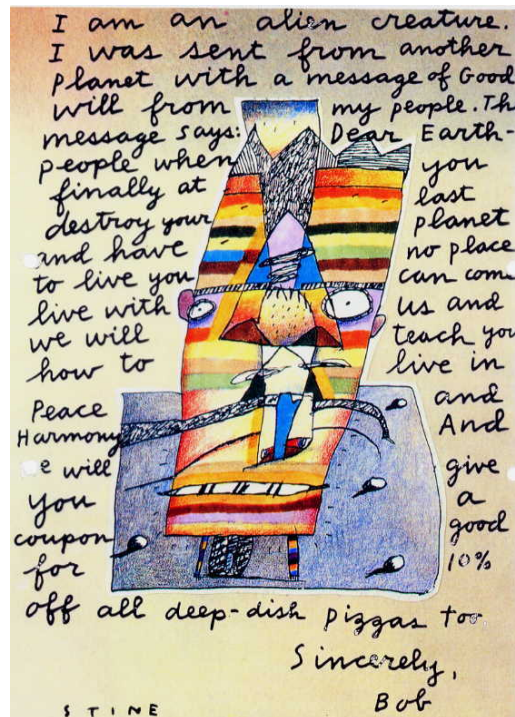 I am an alien creature.
I was sent from another
planet with a message of Good
will from my people. Th
message says: Dear Earth-
people when you
finally at last
destroy your planet
and have no place
to live you can come
live with us and
we will teach you
how to live in
Peace and
Harmony And
e will give
you a
coupon good
for 10%
off all deep-dish pizzas too.
Sincerely,
Bob
STINE